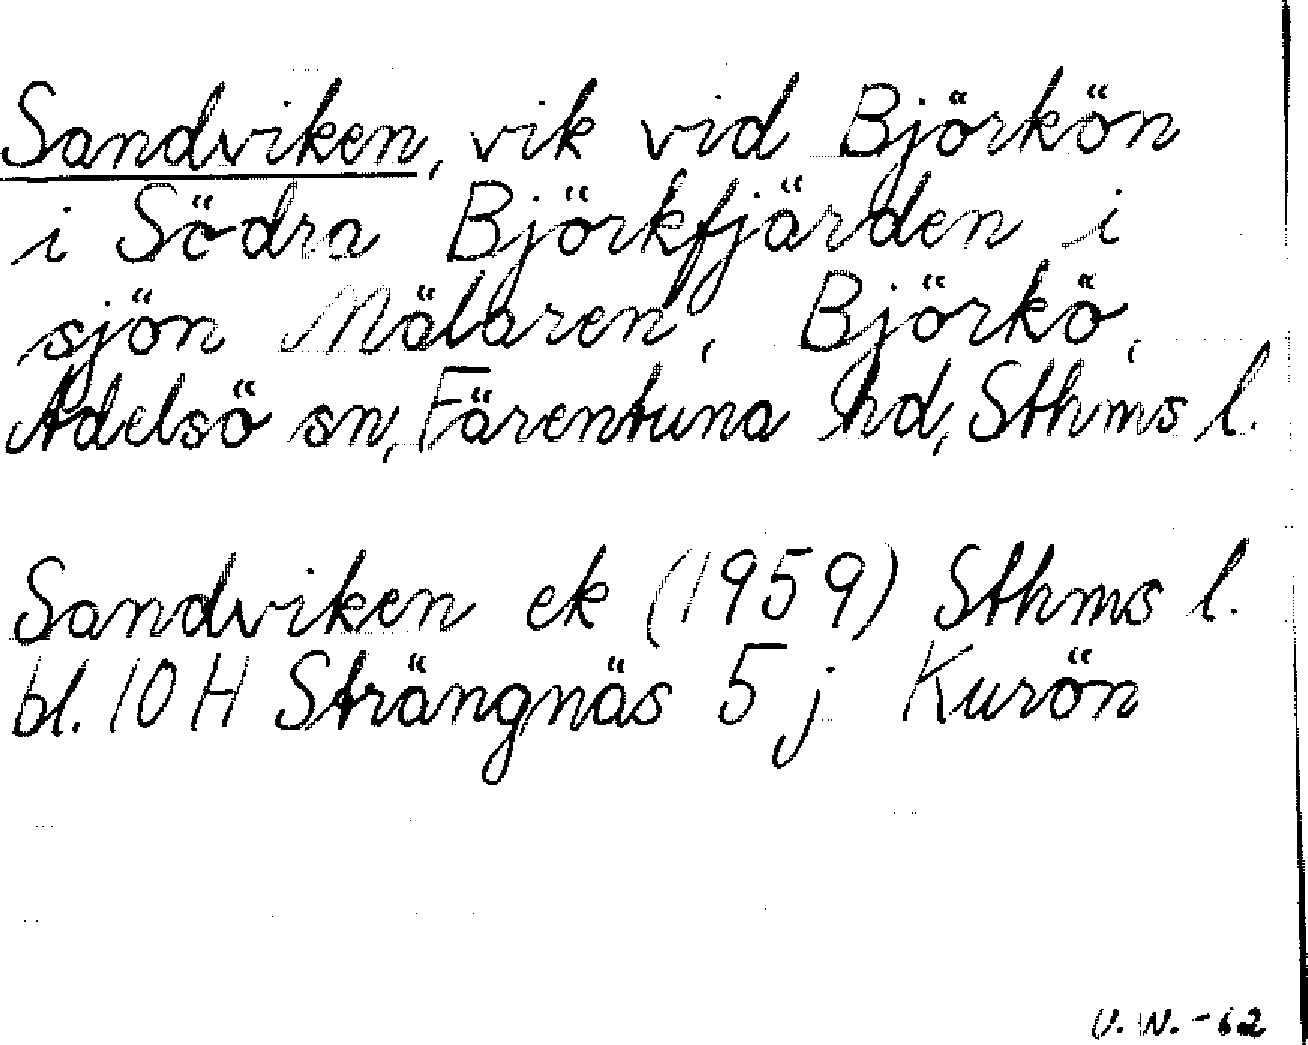 Sandviken, vik vid Björkön
i Södra Björkfjärden i
sjön Mälaren, Björkö,
Adelsö sn, Färentuna hd, Sthms l.
Sandviken ek (1959) Sthms l.
bl. 10 H Strängnäs 5 j Kurön
U. W. - 62